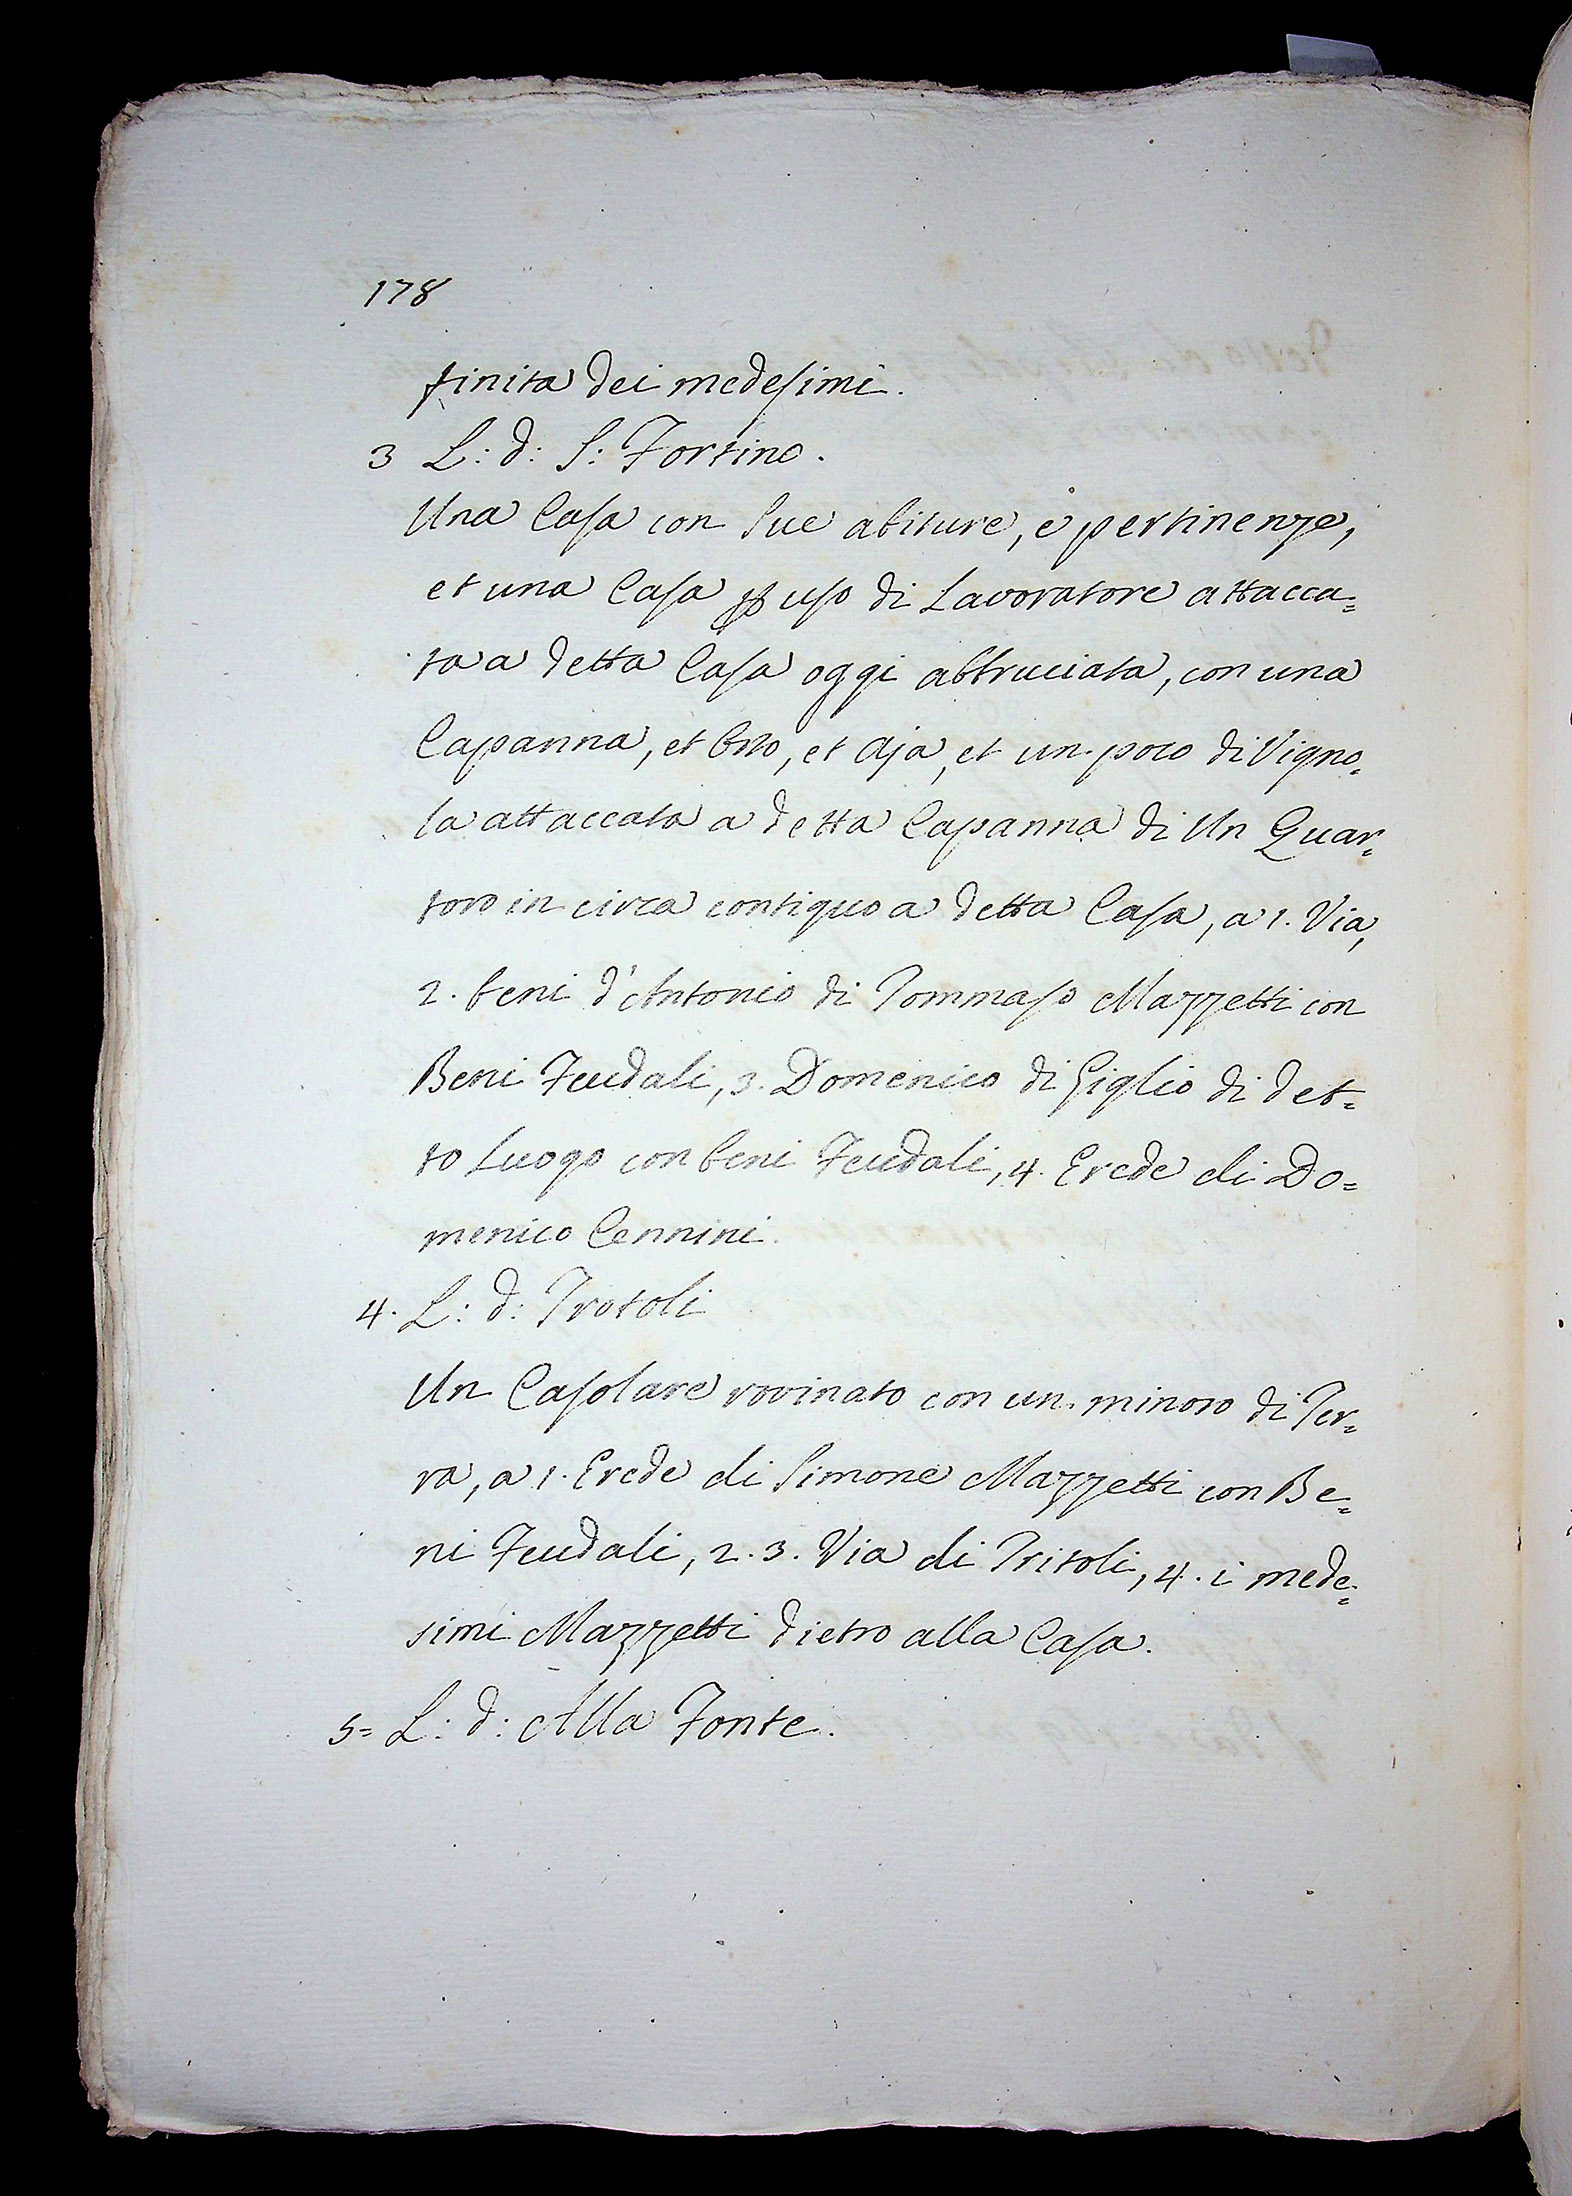 178
finita dei medesimi.
3 L: d: S: Fortino.
Una Casa con sue abiture, e pertinenze,
et una Casa p uso di Lavoratore attacca=
ta a detta Casa oggi abbruciata, con una
Capanna, et Orto, et Aja, et un poco di Vigno=
la attaccata a detta Capanna di Un Quar=
toro in circa contiguo a detta Casa, a 1. Via,
2. beni d'Antonio di Tommaso Mazzetti con
Beni Feudali, 3. Domenico di Giglio di det=
to Luogo con beni Feudali, 4. Erede di Do=
menico Cennini.
4. L: d: Trotoli
Un Casolare rovinato con un minoro di Ter=
ra, a 1. Erede di Simone Mazzetti con Be=
ni Feudali, 2. 3. Via di Tritoli, 4. i mede=
simi Mazzetti dietro alla Casa.
5= L: d: Alla Fonte.